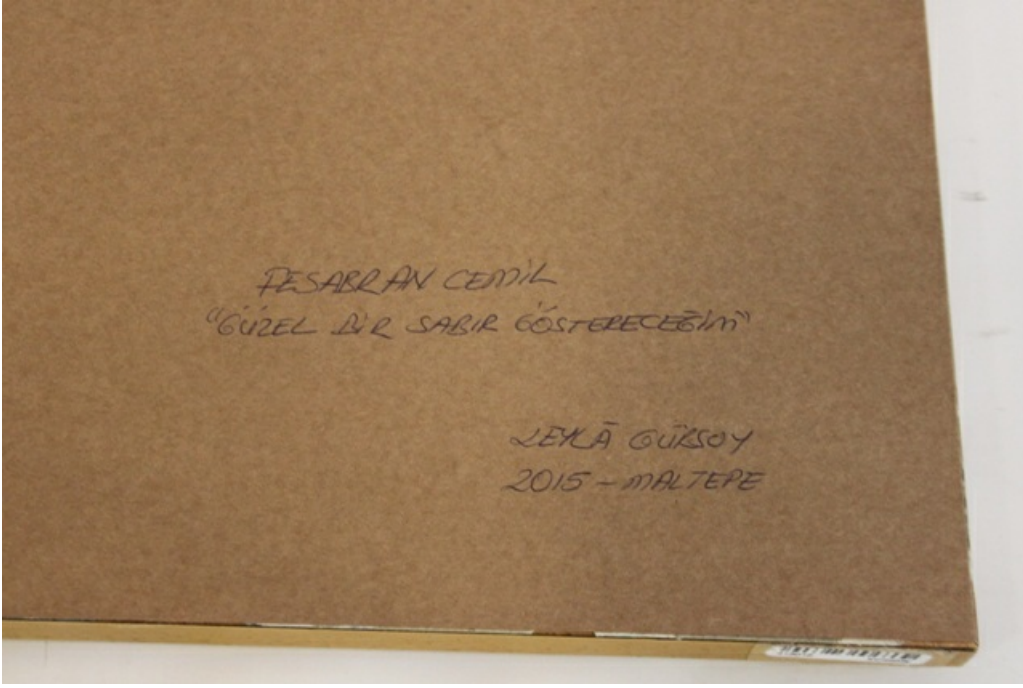 FESABRAN CEMİL
"GÜZEL BİR SABIR GÖSTERECEĞİM"
LEYLÂ GÜRSOY
2015 - MALTEPE